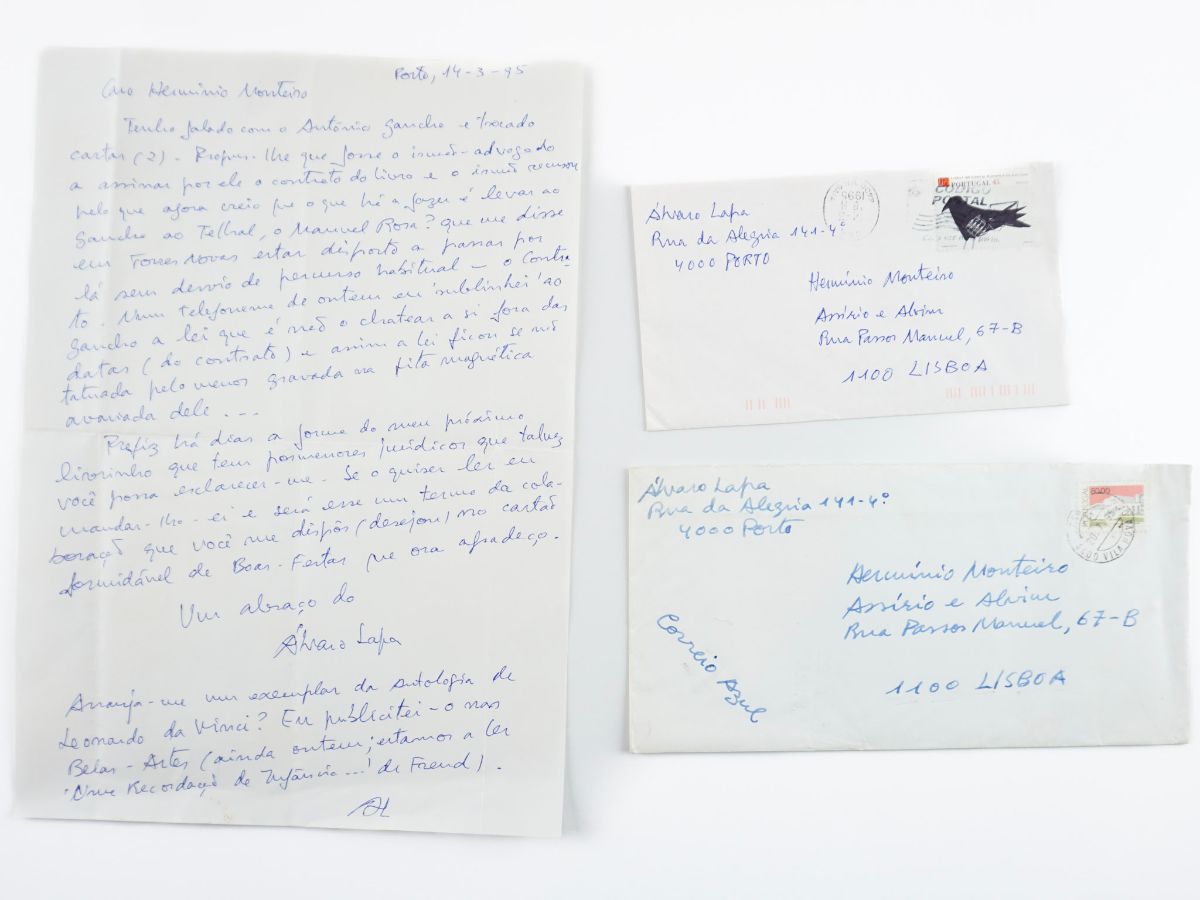 Porto, 14-3-95
Caro Hermínio Monteiro
Tenho falado com o António Gancho e trocado
cartas (2). Propus-lhe que fosse o irmão-advogado
a assinar por ele o contrato do livro e o irmão recusou
pelo que agora creio que o que há a fazer é levar ao
Gancho ao Telhal, o Manuel Rosa? que me disse
em Torres Novas estar disposto a passar por
lá sem desvio de percurso habitual - o contra-
to. Num telefonema de ontem eu 'sublinhei' ao
Gancho a lei que é não o chatear a si fora das
datas (do contrato) e assim a lei ficou se não
tatuada pelo menos gravada na fita magnética
avariada dele ...
Prefiz há dias a forma do meu próximo
livrorinho que tem pormenores jurídicos que talvez
você possa esclarecer-me. Se o quiser ler eu
mandar-lho-ei e será esse um termo da cola-
boração que você me dispôs (desejou) no cartão
formidável de Boas-Festas que ora agradeço.
Um abraço do
Álvaro Lapa
Arranja-me um exemplar da antologia de
Leonardo da Vinci? Eu publicitei-o nas
Belas-Artes (ainda ontem; estamos a ler
'Uma Recordação de Infância...' de Freud).
AL
Álvaro Lapa
Rua da Alegria 141-4º
4000 PORTO
PORTUGAL 45
CÓDIGO
POSTAL
1995
Hermínio Monteiro
Assírio e Alvim
Rua Passos Manuel, 67-B
1100 LISBOA
Álvaro Lapa
Rua da Alegria 141-4º
4000 Porto
Hermínio Monteiro
Assírio e Alvim
Rua Passos Manuel, 67-B
1100 LISBOA
Correio Azul